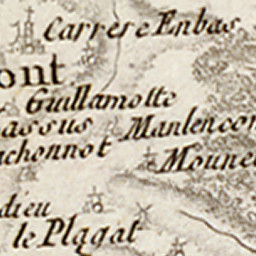 Carrere Enbas
ont
Guillamotte
assus Manlencon
uchonnot
Moune
dieu
le Plagat